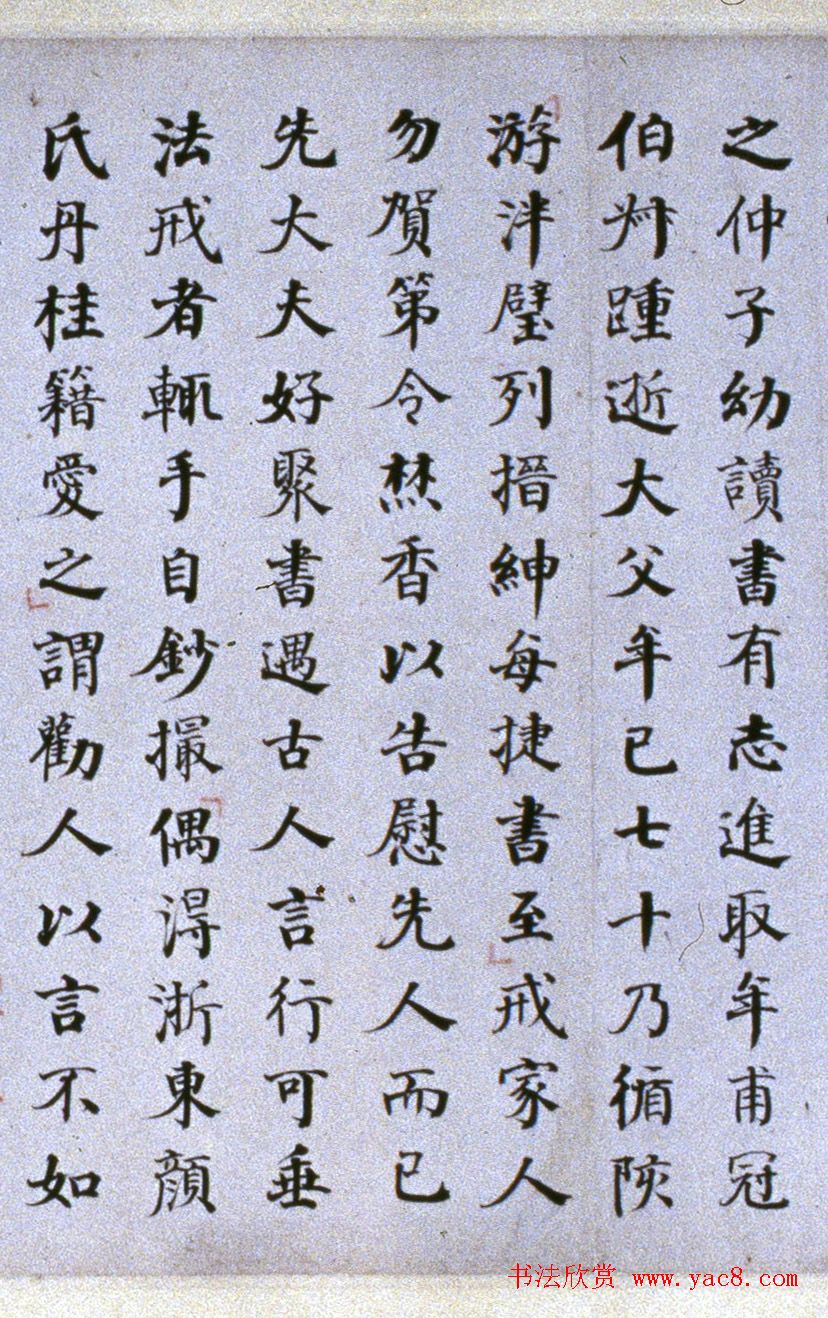 之仲子幼讀書有志進取年甫冠
伯叔踵逝大父年已七十乃循陔
游泮璧列搢紳每捷書至戒家人
勿賀第令焚香以告慰先人而已
先大夫好聚書遇古人言行可垂
法戒者輒手自鈔撮偶淂浙東顏
氏丹桂籍愛之謂勸人以言不如
书法欣赏 www.yac8.com